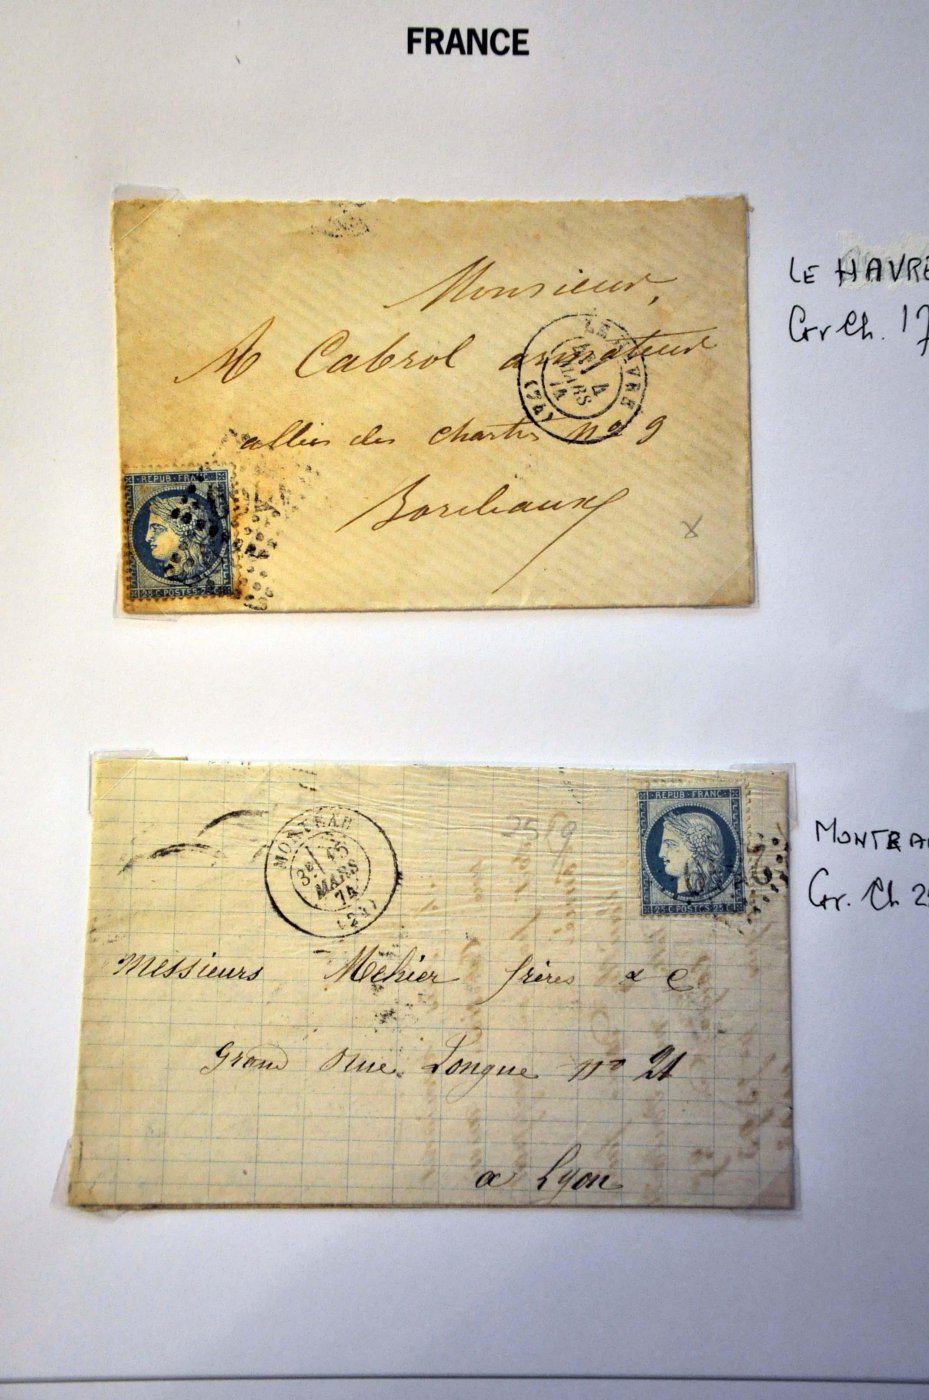 FRANCE
Monsieur,
A Cabrol armateur
allées des chartes no 9
Bordeaux
LE HAVRE
4
MARS
74
(74)
REPUB · FRANC
25 C POSTES 25 C
LE HAVRE
Gr Ch. 17
MONTEAU
3E
15
MARS
74
REPUB · FRANC
25 C POSTES 25 C
25
Messieurs Mehier frères & C
Grand Rue Longue no 21
a Lyon
Gr. Ch 2